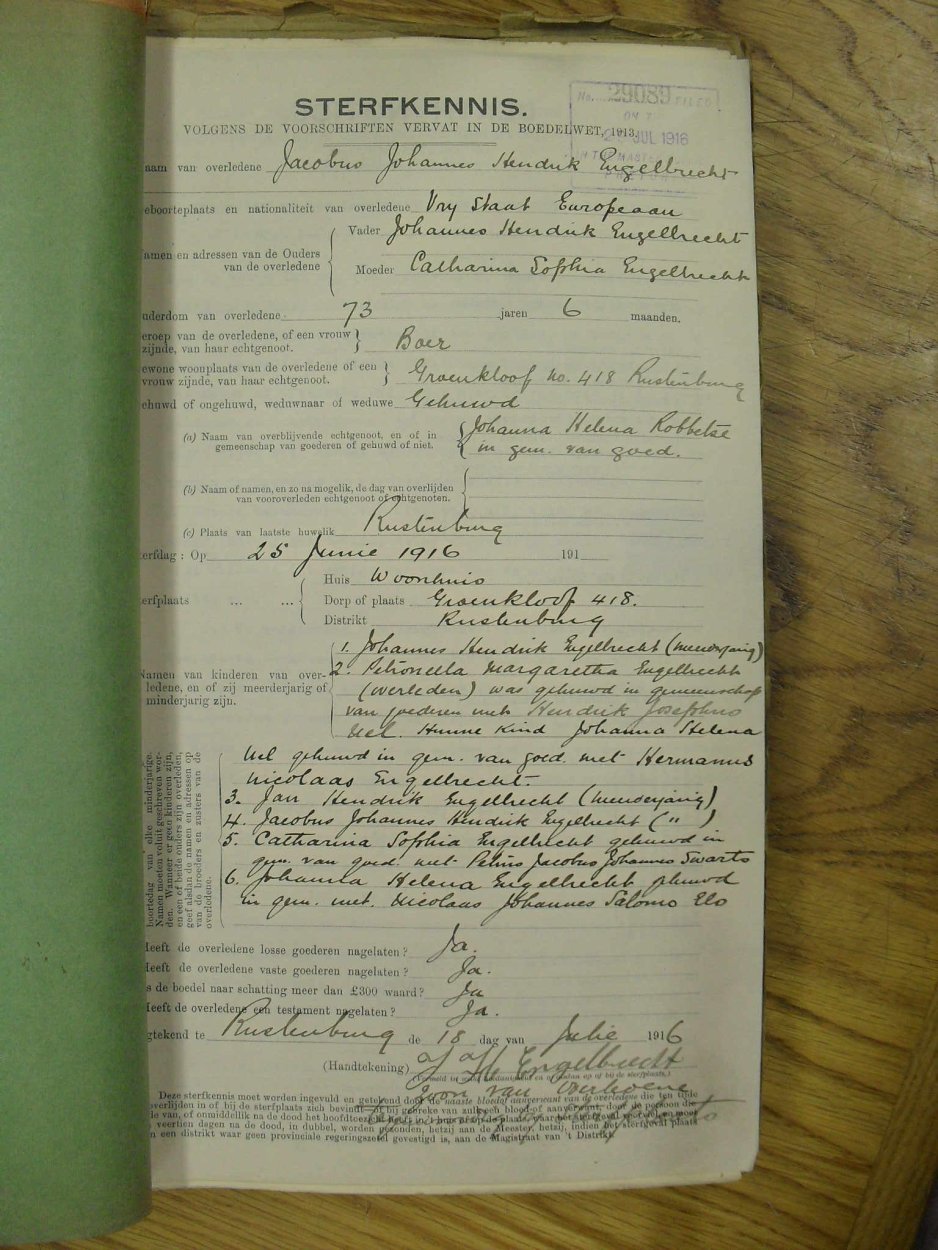 No. 29089 FILED
ON THE
JUL 1916
STERFKENNIS.
VOLGENS DE VOORSCHRIFTEN VERVAT IN DE BOEDELWET, 1913.
aam van overledene Jacobus Johannes Hendrik Engelbrecht
eboorteplaats en nationaliteit van overledene Vry Staat Europeaan
Vader Johannes Hendrik Engelbrecht
amen en adressen van de Ouders
van de overledene
Moeder Catharina Sophia Engelbrecht
uderdom van overledene 73 jaren 6 maanden.
eroep van de overledene, of een vrouw
zijnde, van haar echtgenoot. Boer
ewone woonplaats van de overledene of een
vrouw zijnde, van haar echtgenoot. Groenkloof no. 418 Rustenburg
ehuwd of ongehuwd, weduwnaar of weduwe Gehuwd
(a) Naam van overblijvende echtgenoot, en of in
gemeenschap van goederen of gehuwd of niet.
Johanna Helena Robbetse
in gem. van goed.
(b) Naam of namen, en zo na mogelik, de dag van overlijden
van vooroverleden echtgenoot of echtgenoten.
(c) Plaats van laatste huwelik Rustenburg
erfdag : Op 25 Junie 1916 191
Huis Woonhuis
erfplaats ... ... Dorp of plaats Groenkloof 418.
Distrikt Rustenburg
Namen van kinderen van over-
ledene, en of zij meerderjarig of
minderjarig zijn.
1. Johannes Hendrik Engelbrecht (meerderjarig)
2. Petronella Margaretha Engelbrecht
(overleden) was gehuwd in gemeenschap
van goederen met Hendrik Josephus
Nel. Hunne Kind Johanna Helena
Nel gehuwd in gem. van goed. met Hermanus
Nicolaas Engelbrecht.
3. Jan Hendrik Engelbrecht (meerderjarig)
4. Jacobus Johannes Hendrik Engelbrecht ( " )
5. Catharina Sophia Engelbrecht gehuwd in
gem. van goed. met Petrus Jacobus Johannes Swarts
6. Johanna Helena Engelbrecht gehuwd
in gem. met. Nicolaas Johannes Salomo Elo
boortedag van elke minderjarige.
Namen moeten voluit geschreven wor-
den. Wanneer er geen kinderen zijn,
en een of beide ouders zijn overleden,
geef alsdan de namen en adressen op
van de broeders en zusters van de
overledene.
Heeft de overledene losse goederen nagelaten? Ja.
Heeft de overledene vaste goederen nagelaten? Ja.
s de boedel naar schatting meer dan £300 waard? Ja
Heeft de overledene een testament nagelaten? Ja.
gtekend te Rustenburg de 18 dag van Julie 1916
(Handtekening) J J H Engelbrecht
Zoon van Overledene
Deze sterfkennis moet worden ingevuld en getekend door de naaste bloedof aangetrouwde van de overledene die ten tijde
overlijden in of bij de sterfplaats zich bevindt
veertien dagen na de dood, in dubbel, worden gezonden, hetzij aan de Meester, hetzij, indien het sterfgeval plaats
n een distrikt waar geen provinciale regeringszetel gevestigd is, aan de Magistraat van 't Distrikt.